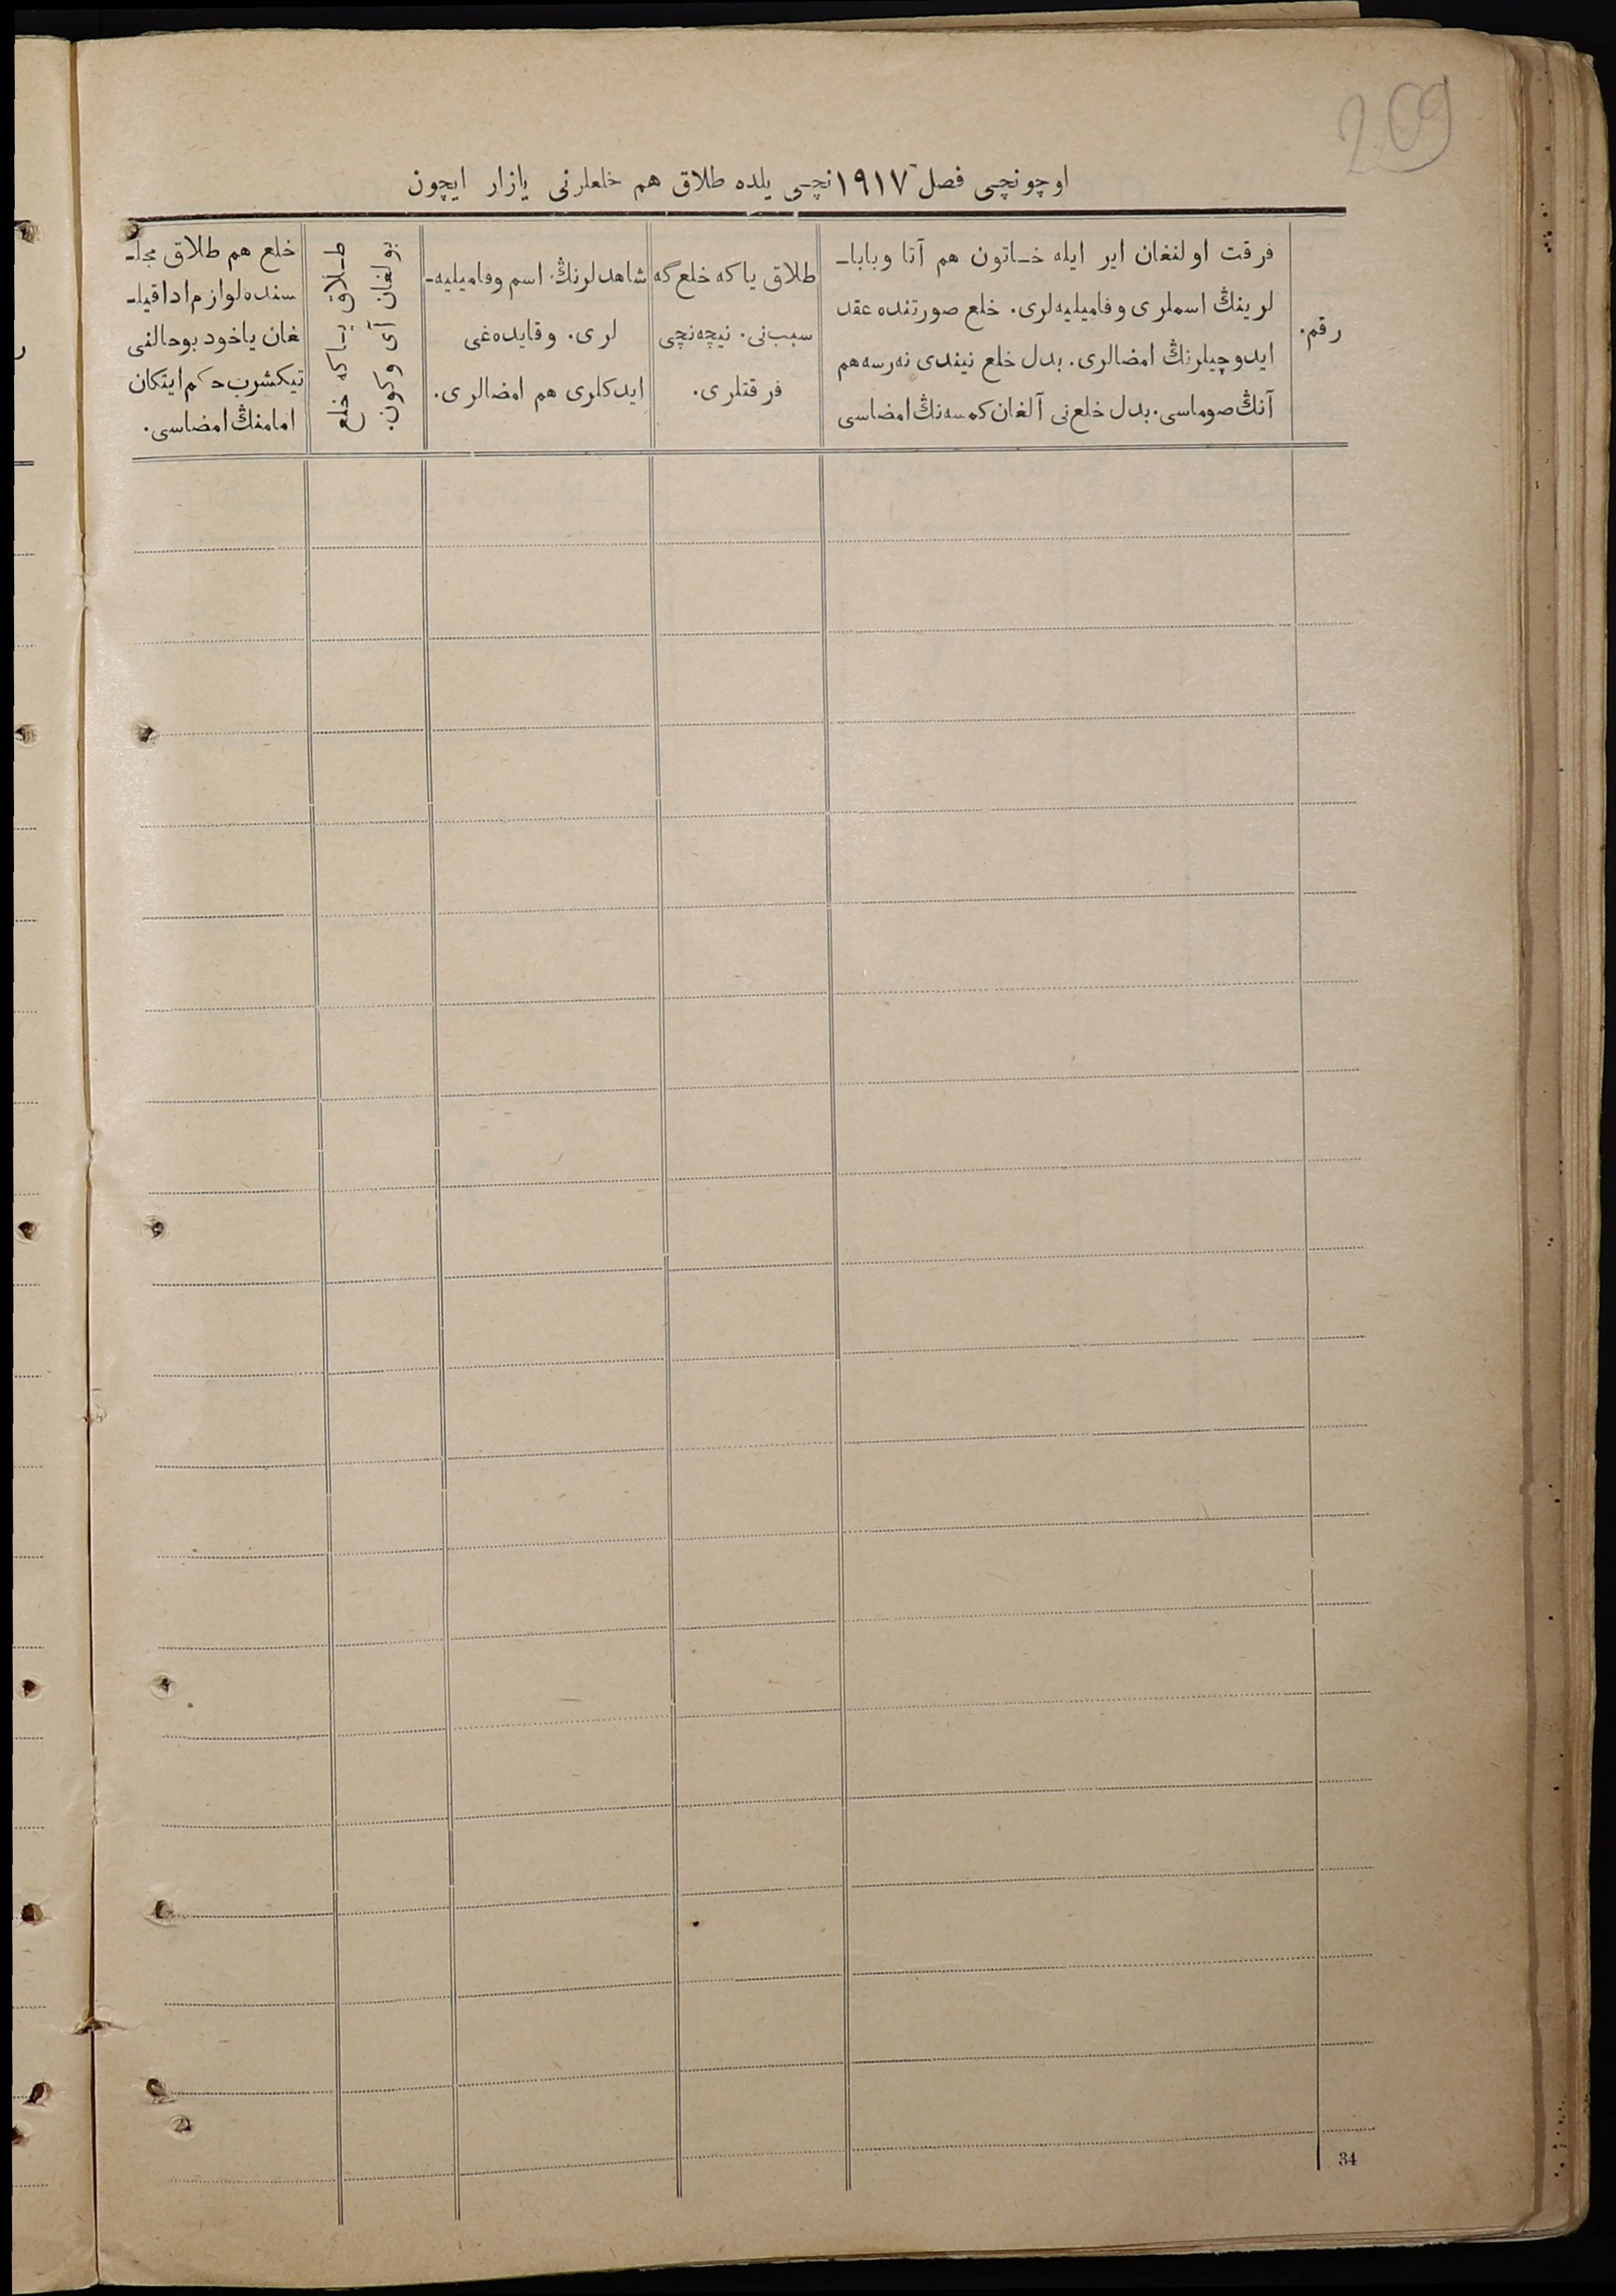 209
اوچونچی فصل ١٩١٧ نچی یلده طلاق هم خلعلرنی یازار ایچون
رقم.
فرقت اولنغان ایر ایله خاتون هم آتا وبابا-
لرینڭ اسملری وفامیلیه‌لری. خلع صورتنده عقد
ایدوچیلرنڭ امضالری. بدل خلع نیندی نه‌رسه هم
آنڭ صوماسی. بدل خلع‌نی آلغان كمسه‌نڭ امضاسی
طلاق یا كه خلع گه
سبب‌نی. نیچه‌نچی
فرقتلری.
شاهدلرنڭ اسم وفامیلیه-
لری. وقایده‌غی
ایدكلری هم امضالری.
طلاق یا كه خلع
بولغان آی وكون.
خلع هم طلاق مجلـ-
سنده لوازم ادا قیلـ-
غان یاخود بوحالنی
تیكشرب حكم ایتكان
امامنڭ امضاسی.
34